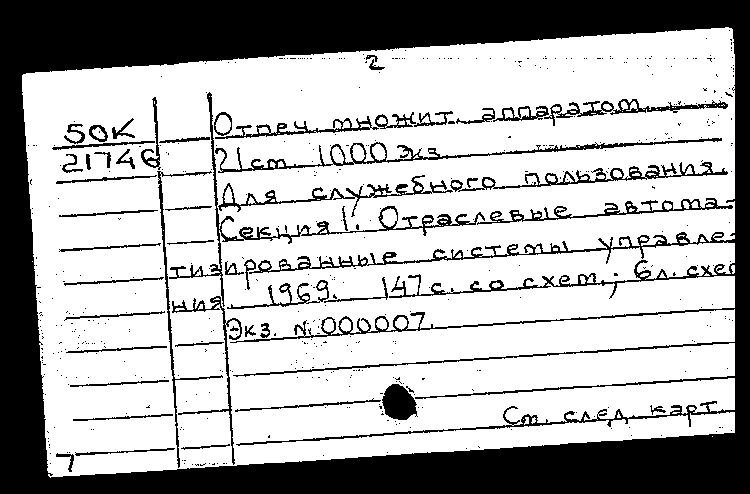 2
50К Отпеч. множит. аппаратом.
21746 21 см. 1000 экз.
Для служебного пользования.
Секция 1. Отраслевые автома-
тизированные системы управле-
ния. 1969. 147 с. со схем.; 6 л. схем
Экз. № 000007.
См. след. карт.
7